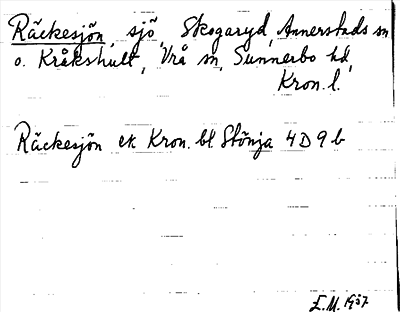 Räckesjön, sjö, Skogaryd, Annerstads sn
o. Kråkshult, Vrå sn, Sunnerbo hd,
Kron. l.
Räckesjön ek Kron. bl Stönja 4 D 9 b
E.M. 1937